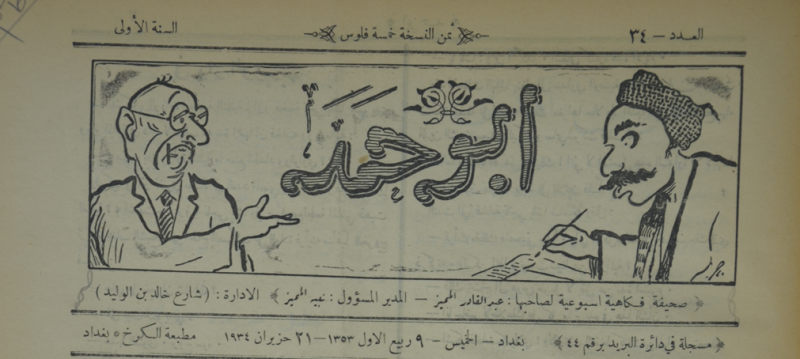 العدد - ٣٤
ثمن النسخة خمسة فلوس
السنة الأولى
أبو حمد
صحيفة فكاهية اسبوعية لصاحبها: عبدالقادر المميز - المدير المسؤول: نهيه المميز
الادارة: (شارع خالد بن الوليد)
مسجلة في دائرة البريد برقم ٤٤
بغداد - الخميس - ٩ ربيع الاول ١٣٥٣ - ٢١ حزيران ١٩٣٤
مطبعة الكرخ * بغداد